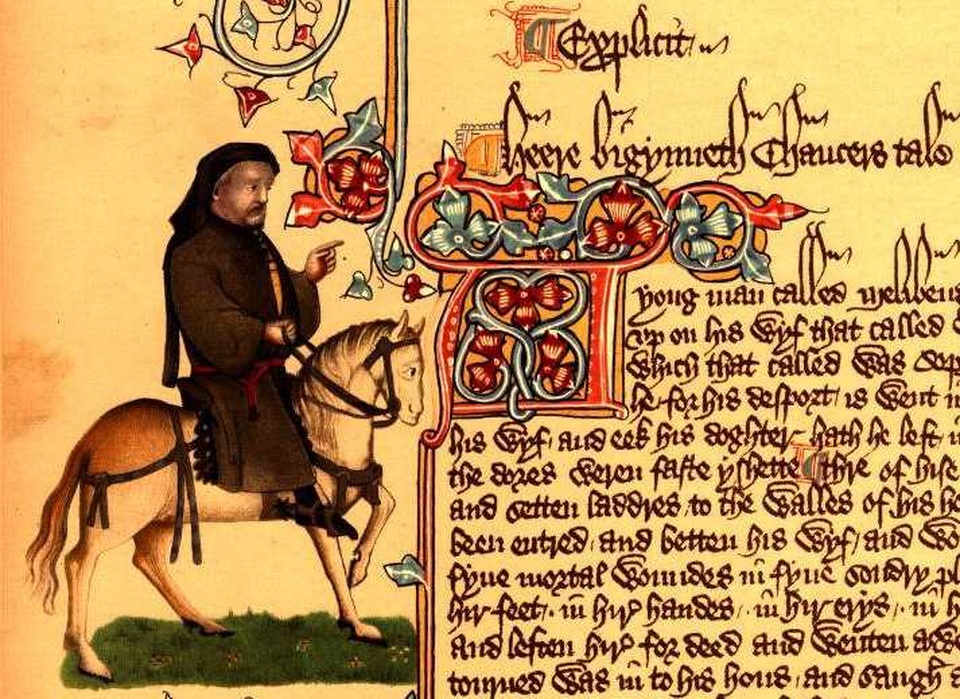 Explicit
Heere bigynneth Chaucers tale
A yong man called Melibeus
vp on his wyf that called
which that called was
he for his desport is went in
his wyf and eek his doghter hath he left in
the dores weren faste yshette thre of hise
and setten laddres to the walles of his
been entred and betten his wyf and wo
fyue mortal woundes in fyue sondry pl
hir feet in hir handes in hir erys in h
And leften hir for deed and wenten awey
tourned was in to his hous and saugh a